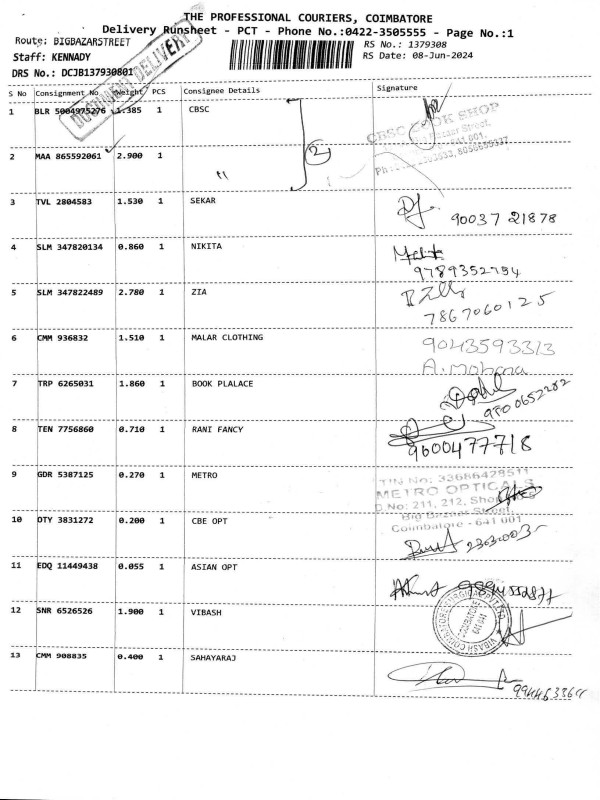 THE PROFESSIONAL COURIERS, COIMBATORE
Delivery Runsheet - PCT - Phone No.:0422-3505555 - Page No.:1
Route: BIGBAZARSTREET
RS No.: 1379308
Staff: KENNADY
RS Date: 08-Jun-2024
DRS No.: DCJB137930801
DOCUMENT DELIVERY
S No Consignment No Weight PCS Consignee Details Signature
1 BLR 5004975276 1.385 1 CBSC
CBSC BOOK SHOP
2 MAA 865592061 2.900 1 "
2
3 TVL 2804583 1.530 1 SEKAR
90037 21878
4 SLM 347820134 0.860 1 NIKITA
9789352794
5 SLM 347822489 2.780 1 ZIA
7867060125
6 CMM 936832 1.510 1 MALAR CLOTHING
9043593313
A. Mohana
7 TRP 6265031 1.860 1 BOOK PLALACE
9500652282
8 TEN 7756860 0.710 1 RANI FANCY
9600477718
9 GDR 5387125 0.270 1 METRO
TIN No: 33686428511
METRO OPTICALS
D.No: 211, 212, Shop
Big Bazaar Street,
Coimbatore - 641 001
10 OTY 3831272 0.200 1 CBE OPT
11 EDQ 11449438 0.055 1 ASIAN OPT
12 SNR 6526526 1.900 1 VIBASH
13 CMM 908835 0.400 1 SAHAYARAJ